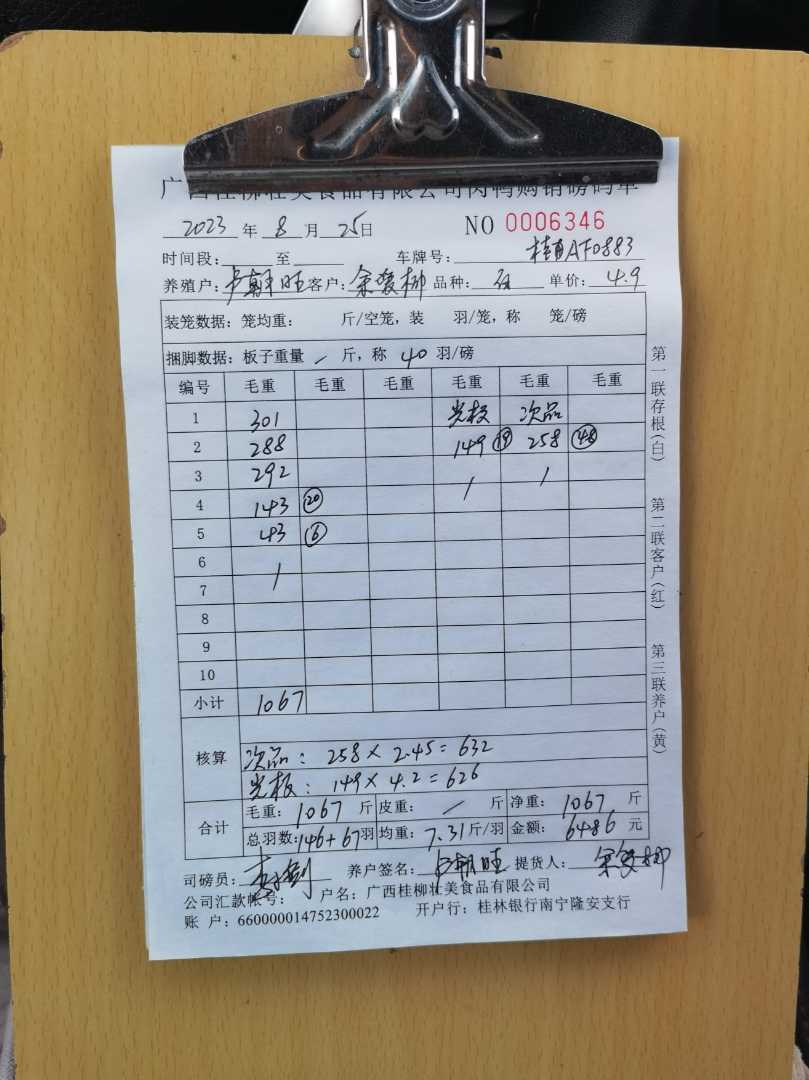 广西桂柳壮美食品有限公司肉鸭购销磅码单
2023 年 8 月 25日 NO 0006346
时间段: 至 车牌号: 桂AF0883
养殖户: 卢朝旺 客户: 余爱柳 品种: 单价: 4.9
装笼数据: 笼均重: 斤/空笼, 装 羽/笼, 称 笼/磅
捆脚数据: 板子重量 / 斤, 称 40 羽/磅
编号 毛重 毛重 毛重 毛重 毛重 毛重
1 301 光板 次品
2 288 149 ⑲ 258 ㊽
3 292 / /
4 143 ⑳
5 43 ⑥
6 /
7
8
9
10
小计 1067
核算
次品: 258 × 2.45 = 632
光板: 149 × 4.2 = 626
合计 毛重: 1067 斤 皮重: / 斤 净重: 1067 斤
总羽数: 146+67 羽 均重: 7.31 斤/羽 金额: 6486 元
司磅员: 养户签名: 卢朝旺 提货人: 余爱柳
公司汇款帐号: 户名: 广西桂柳壮美食品有限公司
账 户: 660000014752300022 开户行: 桂林银行南宁隆安支行
第一联存根(白) 第二联客户(红) 第三联养户(黄)